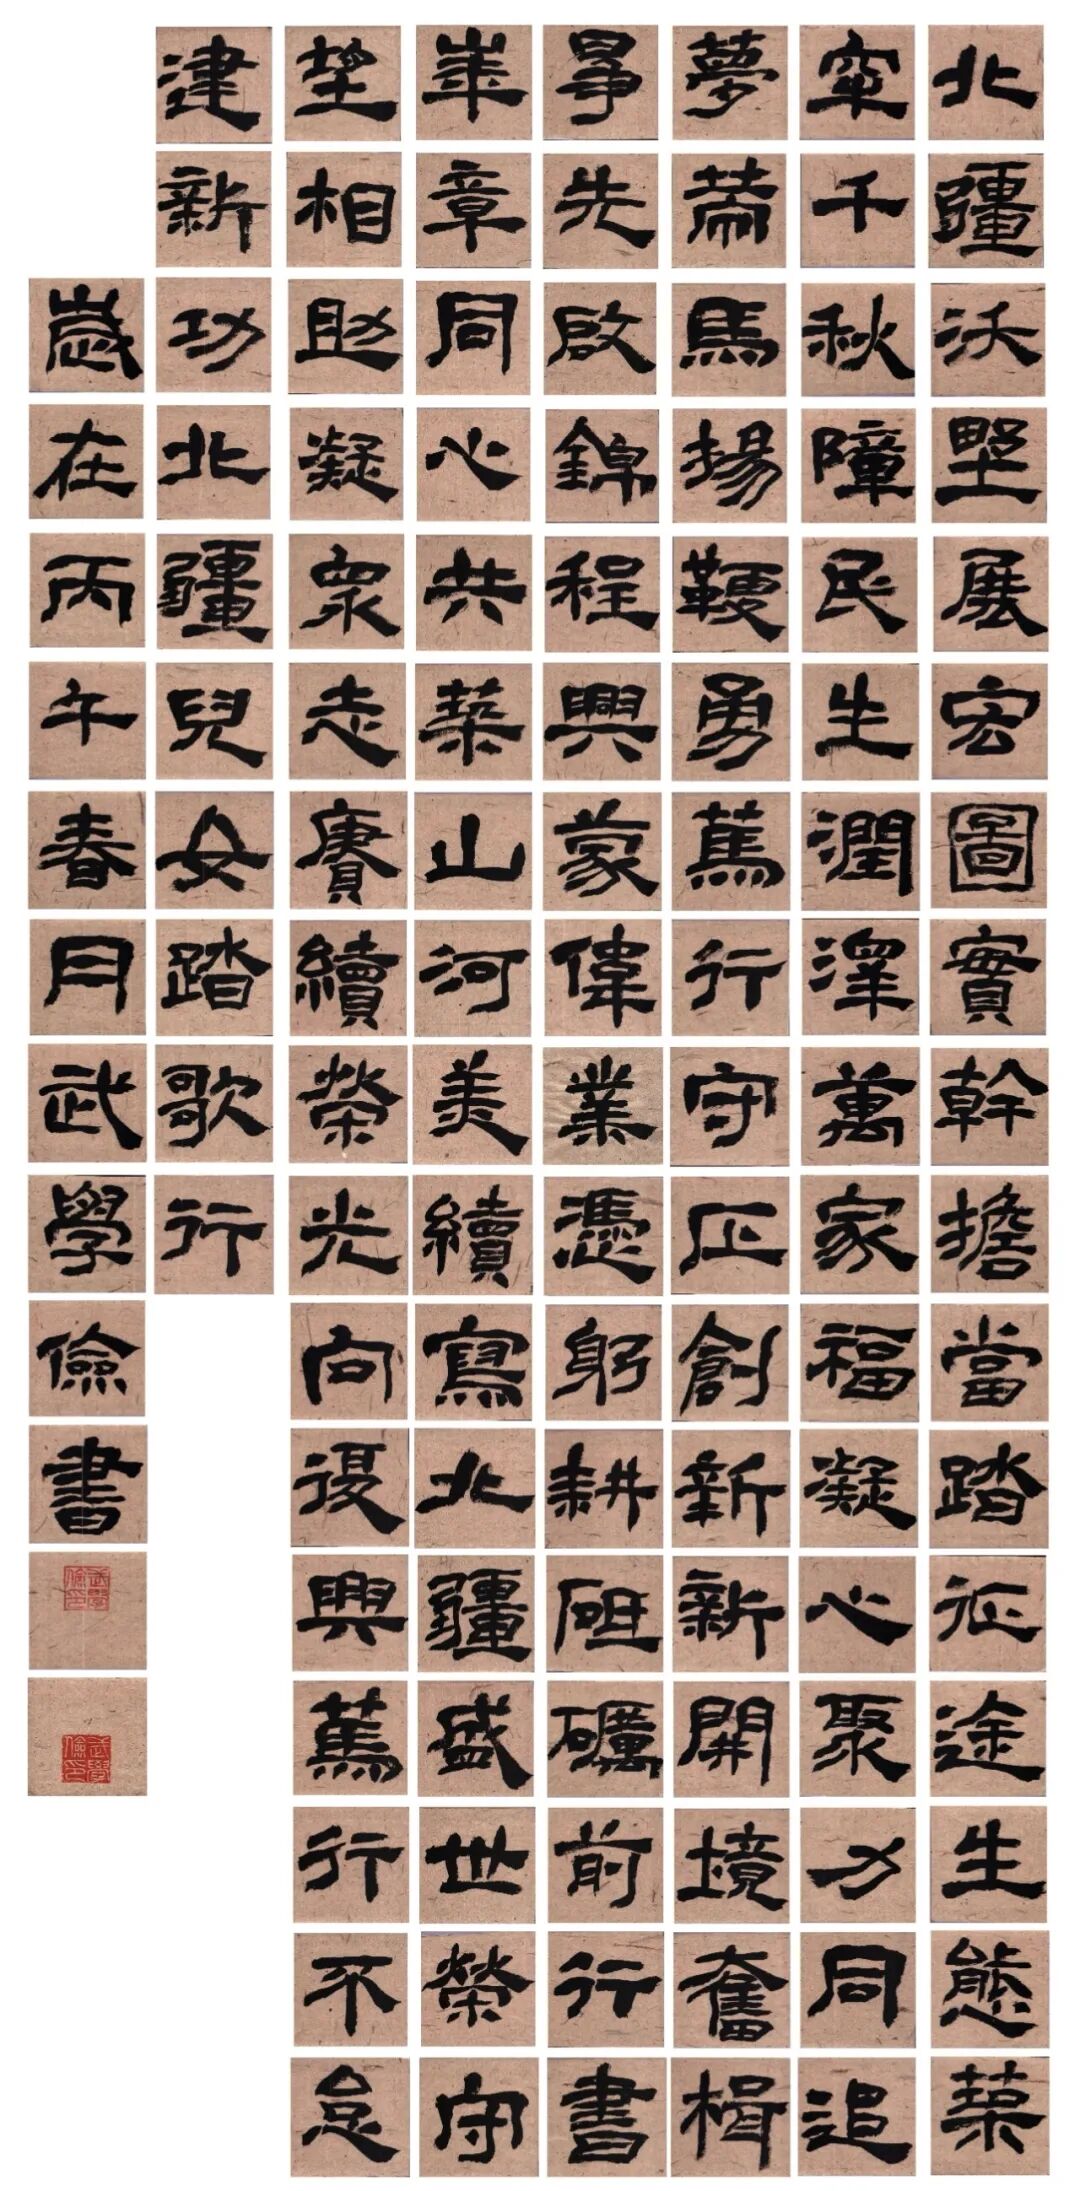 北疆沃野展宏圖實幹擔當踏征途生態築
牢千秋障民生潤澤萬家福凝心聚力同追
夢策馬揚鞭勇篤行守正創新新開境奮楫
爭先啟錦程興蒙偉業憑躬耕砥礪前行書
華章同心共築山河美續寫北疆盛世榮守
望相助凝眾志賡續榮光向復興篤行不怠
建新功北疆兒女踏歌行
歲在丙午春月武學儉書
武學儉印
武學儉印